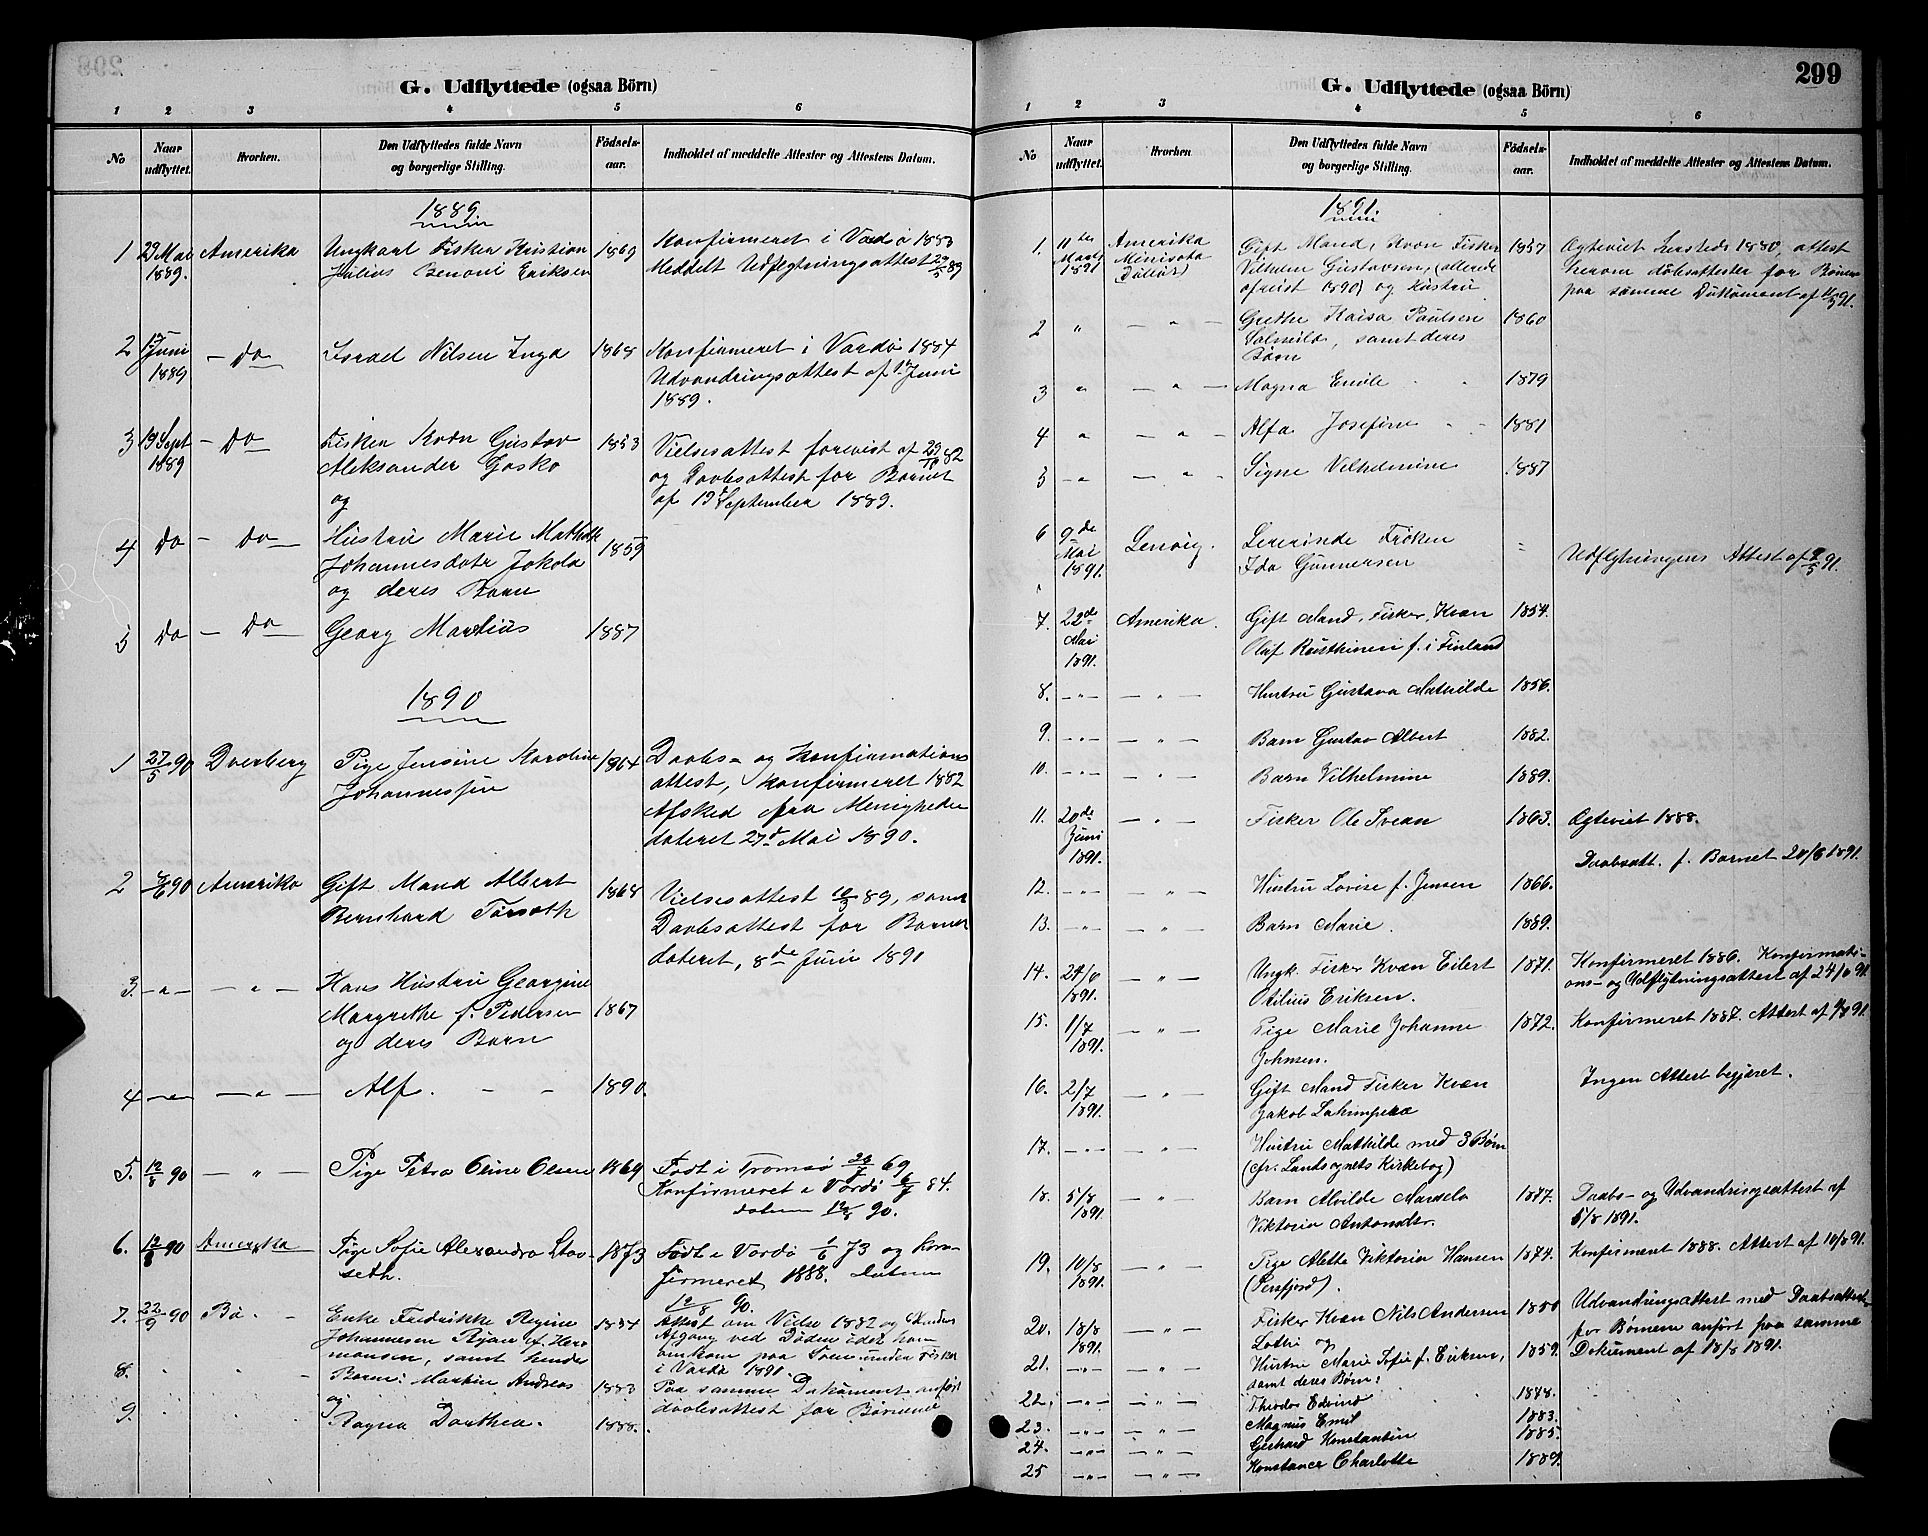 G. Udflyttede (ogsaa Börn)
1 2 3 4 5 6
No Naar udflyttet. Hvorhen. Den Udflyttedes fulde Navn og borgerlige Stilling. Födsels-aar. Indholdet af meddelte Attester og Attestens Datum.
1889.
1 29 Mai 1889. Amerika Ungkarl Fisker Kristian 1869 Konfirmeret i Vardø 1883
Julius Benoni Eriksen Meddelt Udflytningsattest 29/5 89
2 Juni 1889 - Do Israel Nilsen Inga 1868 Konfirmeret i Vardö 1884
Udvandringsattest af Juni
1889.
3 19 Sept 1889 - Do Fisker Kvæn Gustav 1853 Vielsesattest forevist af 82
Aleksander Gasko og Daabsattest for Barnet
og af 19 September 1889.
4 Do - Do Hustru Marie Mathilde 1859
Johannesdatr Jokola
og deres Barn
5 Do - Do Georg Marelius 1887
1890
1 27/5 90 Dverberg Pige Jensine Karoline 1864 Daabs- og Konfirmations
Johannessen attest, konfirmeret 1882
Afsked fra Menigheden
dateret 27d Mai 1890.
2 8/6 90 Amerika Gift Mand Albert 1868 Vielsesattest 89, samt
Bernhard Torseth Daabsattest for Barnet
dateret, 8de Juni 1890
3. -"- - " - Hans Hustru Georgine
Margrethe f. Pedersen 1867
og deres Barn
4 -"- - " - Alf. - - 1890.
5. 12/8 90 - " - Pige Petra Oline Olsen 1869 Födt i Tromsö 69
Konfirmeret i Vardö 84.
datum 12/8 90.
6. 12/8 90 Amerika Pige Sofie Alexandra Stav- 1873 Födt i Vardö 1/6 73 og kon-
seth. firmeret 1888. Datum
12/8 90.
7. 22/9 90 Bø. - Enke Fredrikke Regine 1854 Attest om Vielse 1882 og Mandens
Johannesen f. Her- Afgang ved Döden idet han
mansen, samt hendes omkom paa Söen under Fiskeri
8. Börn: Martin Andreas 1883 i Vardö 1890.
og Paa samme Dokument anført
9. Ragna Dorthea. 1888. daabsattest for Børnene
299
G. Udflyttede (ogsaa Börn)
1 2 3 4 5 6
No Naar udflyttet. Hvorhen. Den Udflyttedes fulde Navn og borgerlige Stilling. Födsels-aar. Indholdet af meddelte Attester og Attestens Datum.
1891.
1. 11te Marts 1891 Amerika Gift Mand, Kvæn Fisker 1857 Ægteviet 1880, attest
Minisota Vilhelm Gustavsen, (allerede herom döbsattester for Børnene
(Dulut) afreist 1890) og Hustru paa samme Dokument af 91.
2 " - " - Grethe Kaisa Paulsen 1860
samt deres
Börn
3 " - " - Magna Emile 1879
4 " - " - Alfa Josefine 1881
5 -"- - " - Signe Vilhelmine 1887
6 9de Mai 1891. Lenvig. Lererinde Fröken Udflytningens Attest af 9/5 91.
Ida Gunnersen
7. 22de Mai 1891. Amerika. Gift Mand, Fisker, Kvæn 1854.
Oluf f. i Finland
8. -"- - " - Hustru Gustava Mathilde 1856.
9. -"- - " - Barn Gustav Albert 1882.
10. -"- - " - Barn Vilhelmine 1889.
11. 20de Juni 1891. - " - Fisker Ole Svean 1863. Ægteviet 1888.
Daabsatt. f. Barnet 20/6 1891.
12. -"- - " - Hustru Lovise f. Jensen 1866.
13. -"- - " - Barn Marie. 1889.
14. 24/6 1891. - " - Ungk. Fisker Kvæn Eilert 1871. Konfirmeret 1886. Konfirmati-
Otilius Eriksen. ons- og Udflytningsattest af 24/6 91.
15. 1/7 1891. - " - Pige Marie Johanne 1872. Konfirmeret 1887. Attest af 91.
Johnsen.
16. 2/7 1891. - " - Gift Mand Fisker Kvæn Ingen Attest begjæret.
Jakob Lahinpera
17. -"- - " - Hustru Mathilde med 3 Børn
(cfr. Landsognets Kirkebog)
18. 5/8 1891. - " - Barn Alvilde Mardela 1877. Daabs- og Udvandringsattest af
Viktoria Antonsdtr. 5/8 1891.
19. 10/8 1891. - " - Pige Alette Viktoria Hansen 1874. Konfirmeret 1888. Attest af 10/8 91.
(Persfjord).
20. 18/8 1891. - " - Fisker Kvæn Nils Andersen 1850 Udvandringsattest med Daabsattest
Lotti og for Børnene anført paa samme
21. -"- - " - Hustru Marie Sofie f. Eriksen, 1859. Dokument af 18/8 1891.
samt deres Børn:
22. -"- - " - Theodor Edvind 1878.
23. -"- - " - Magnus Emil 1883.
24. -"- - " - Gerhard Konstantin 1885.
25 -"- - " - Konstance Charlotte 1889.